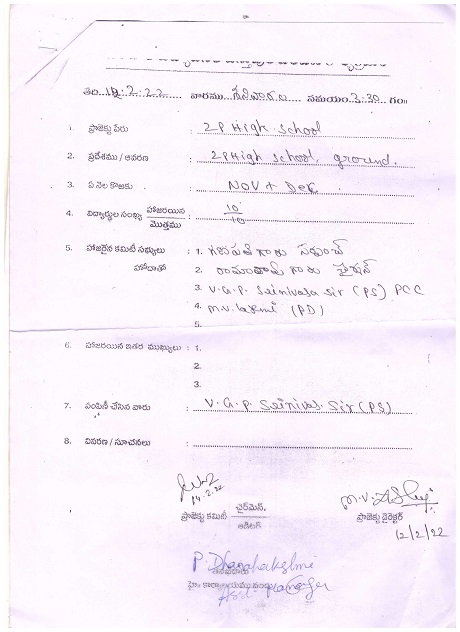 తేది 12.2.22 వారము శనివారం సమయం 3-30 గం॥
1. ప్రాజెక్టు పేరు : 2P High School
2. ప్రదేశము / ఆవరణ : 2P High School, ground.
3. ఏ నెల కొఱకు : NOV + Dec
4. విద్యార్థుల సంఖ్య హాజరయిన / మొత్తము : 10/10
5. హాజరైన కమిటీ సభ్యులు : 1. గణపతి గారు సర్పంచ్
హోదాతో 2. రామారావు గారు
3. V.G.P. Seinivasa Sir (PS) PCC
4. M.V. Laxmi (PD)
5.
6. హాజరయిన ఇతర ముఖ్యులు : 1.
2.
3.
7. పంపిణీ చేసిన వారు : V.G.P. Seinivas. Sir (PS)
8. వివరణ / సూచనలు :
14.2.22
ప్రాజెక్టు కమిటీ ఛైర్మెన్, / ఆడిటర్
M.V.
ప్రాజెక్టు డైరెక్టర్
12/2/22
P. Dhanalakshmi